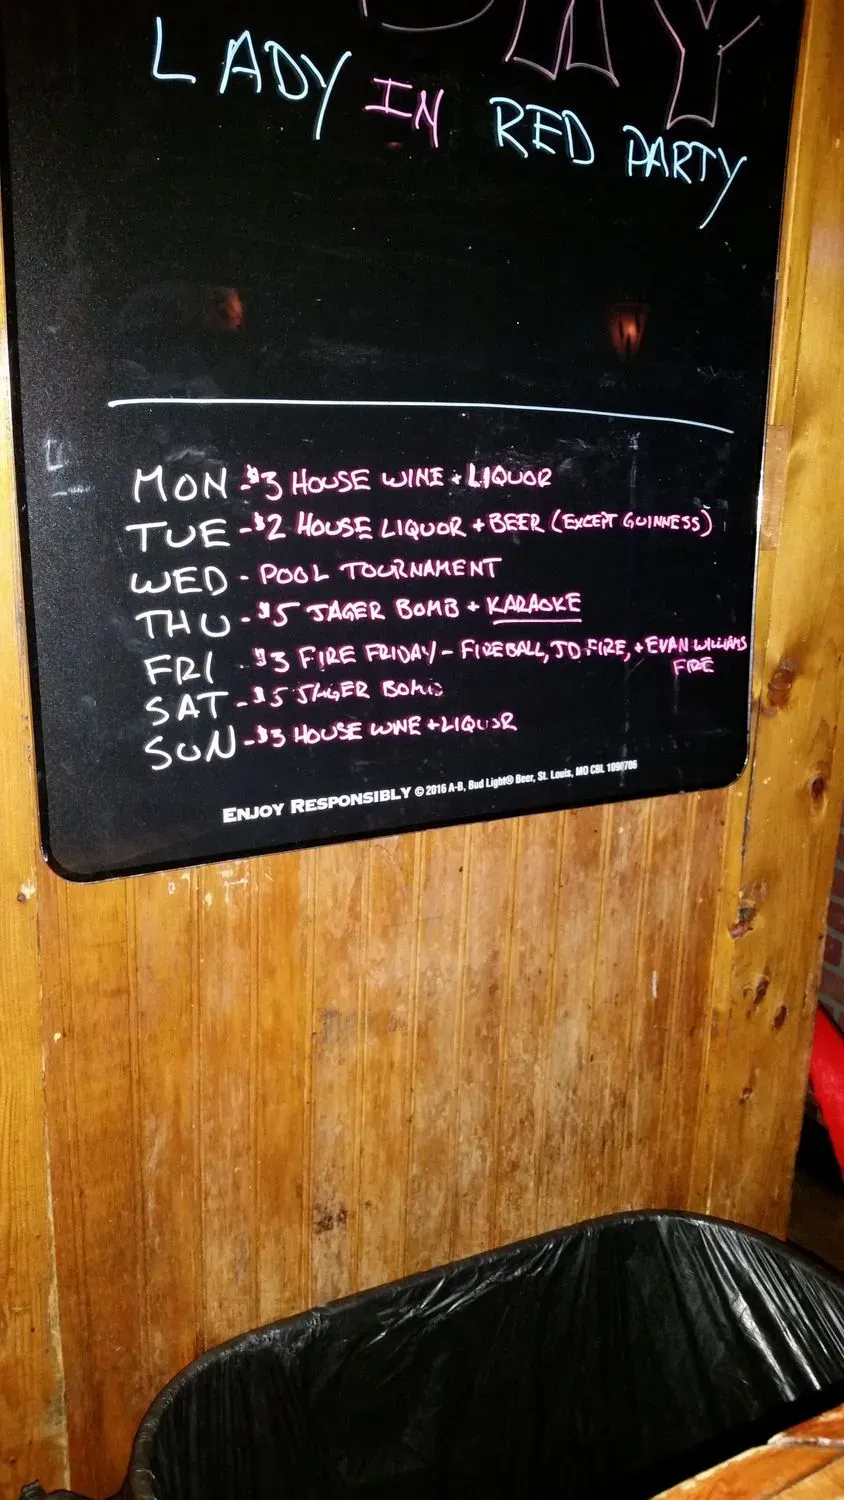 LADY IN RED PARTY
MON - $3 HOUSE WINE + LIQUOR
TUE - $2 HOUSE LIQUOR + BEER (EXCEPT GUINNESS)
WED - POOL TOURNAMENT
THU - $5 JAGER BOMB + KARAOKE
FRI - $3 FIRE FRIDAY - FIREBALL, JD FIRE, + EVAN WILLIAMS
FIRE
SAT - $5 JAGER BOMB
SUN - $3 HOUSE WINE + LIQUOR
ENJOY RESPONSIBLY © 2016 A-B, Bud Light® Beer, St. Louis, MO CBL